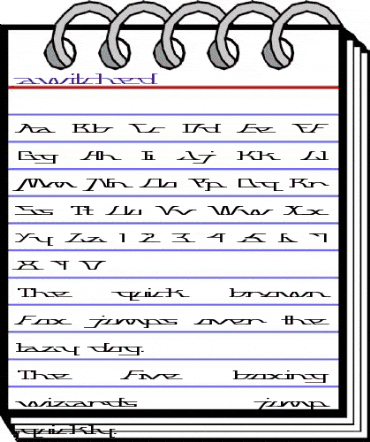 awitched
Aa Bb Cc Dd Ee Ff
Gg Hh Ii Jj Kk Ll
Mm Nn Oo Pp Qq Rr
Ss Tt Uu Vv Ww Xx
Yy Zz 1 2 3 4 5 6 7
8 9 0
The quick brown
Fox jumps over the
lazy dog.
The Five boxing
wizards jump
quickly.